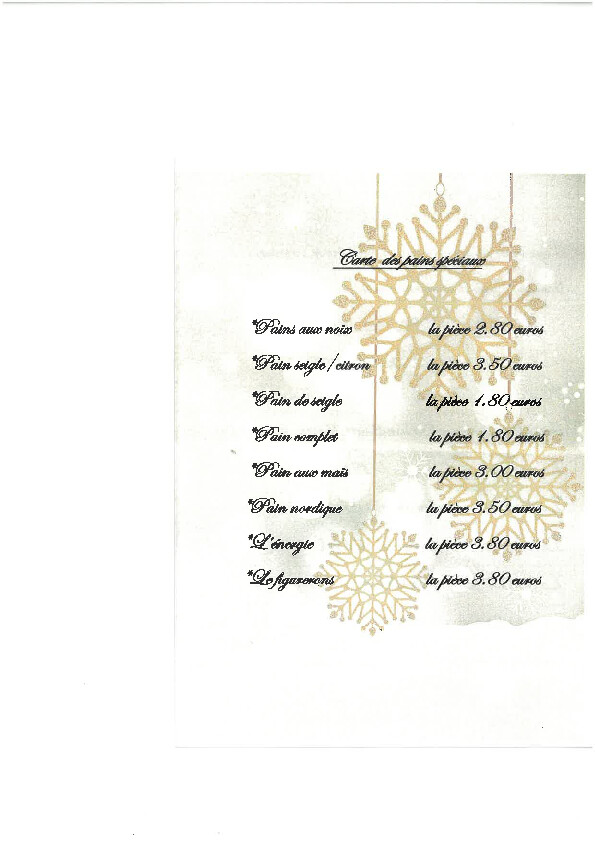 Carte des pains spéciaux
*Pains aux noix la pièce 2.80 euros
*Pain seigle/citron la pièce 3.50 euros
*Pain de seigle la pièce 1.80 euros
*Pain complet la pièce 1.80 euros
*Pain aux maïs la pièce 3.00 euros
*Pain nordique la pièce 3.50 euros
*L'énergie la pièce 3.80 euros
*Le figurerons la pièce 3.80 euros